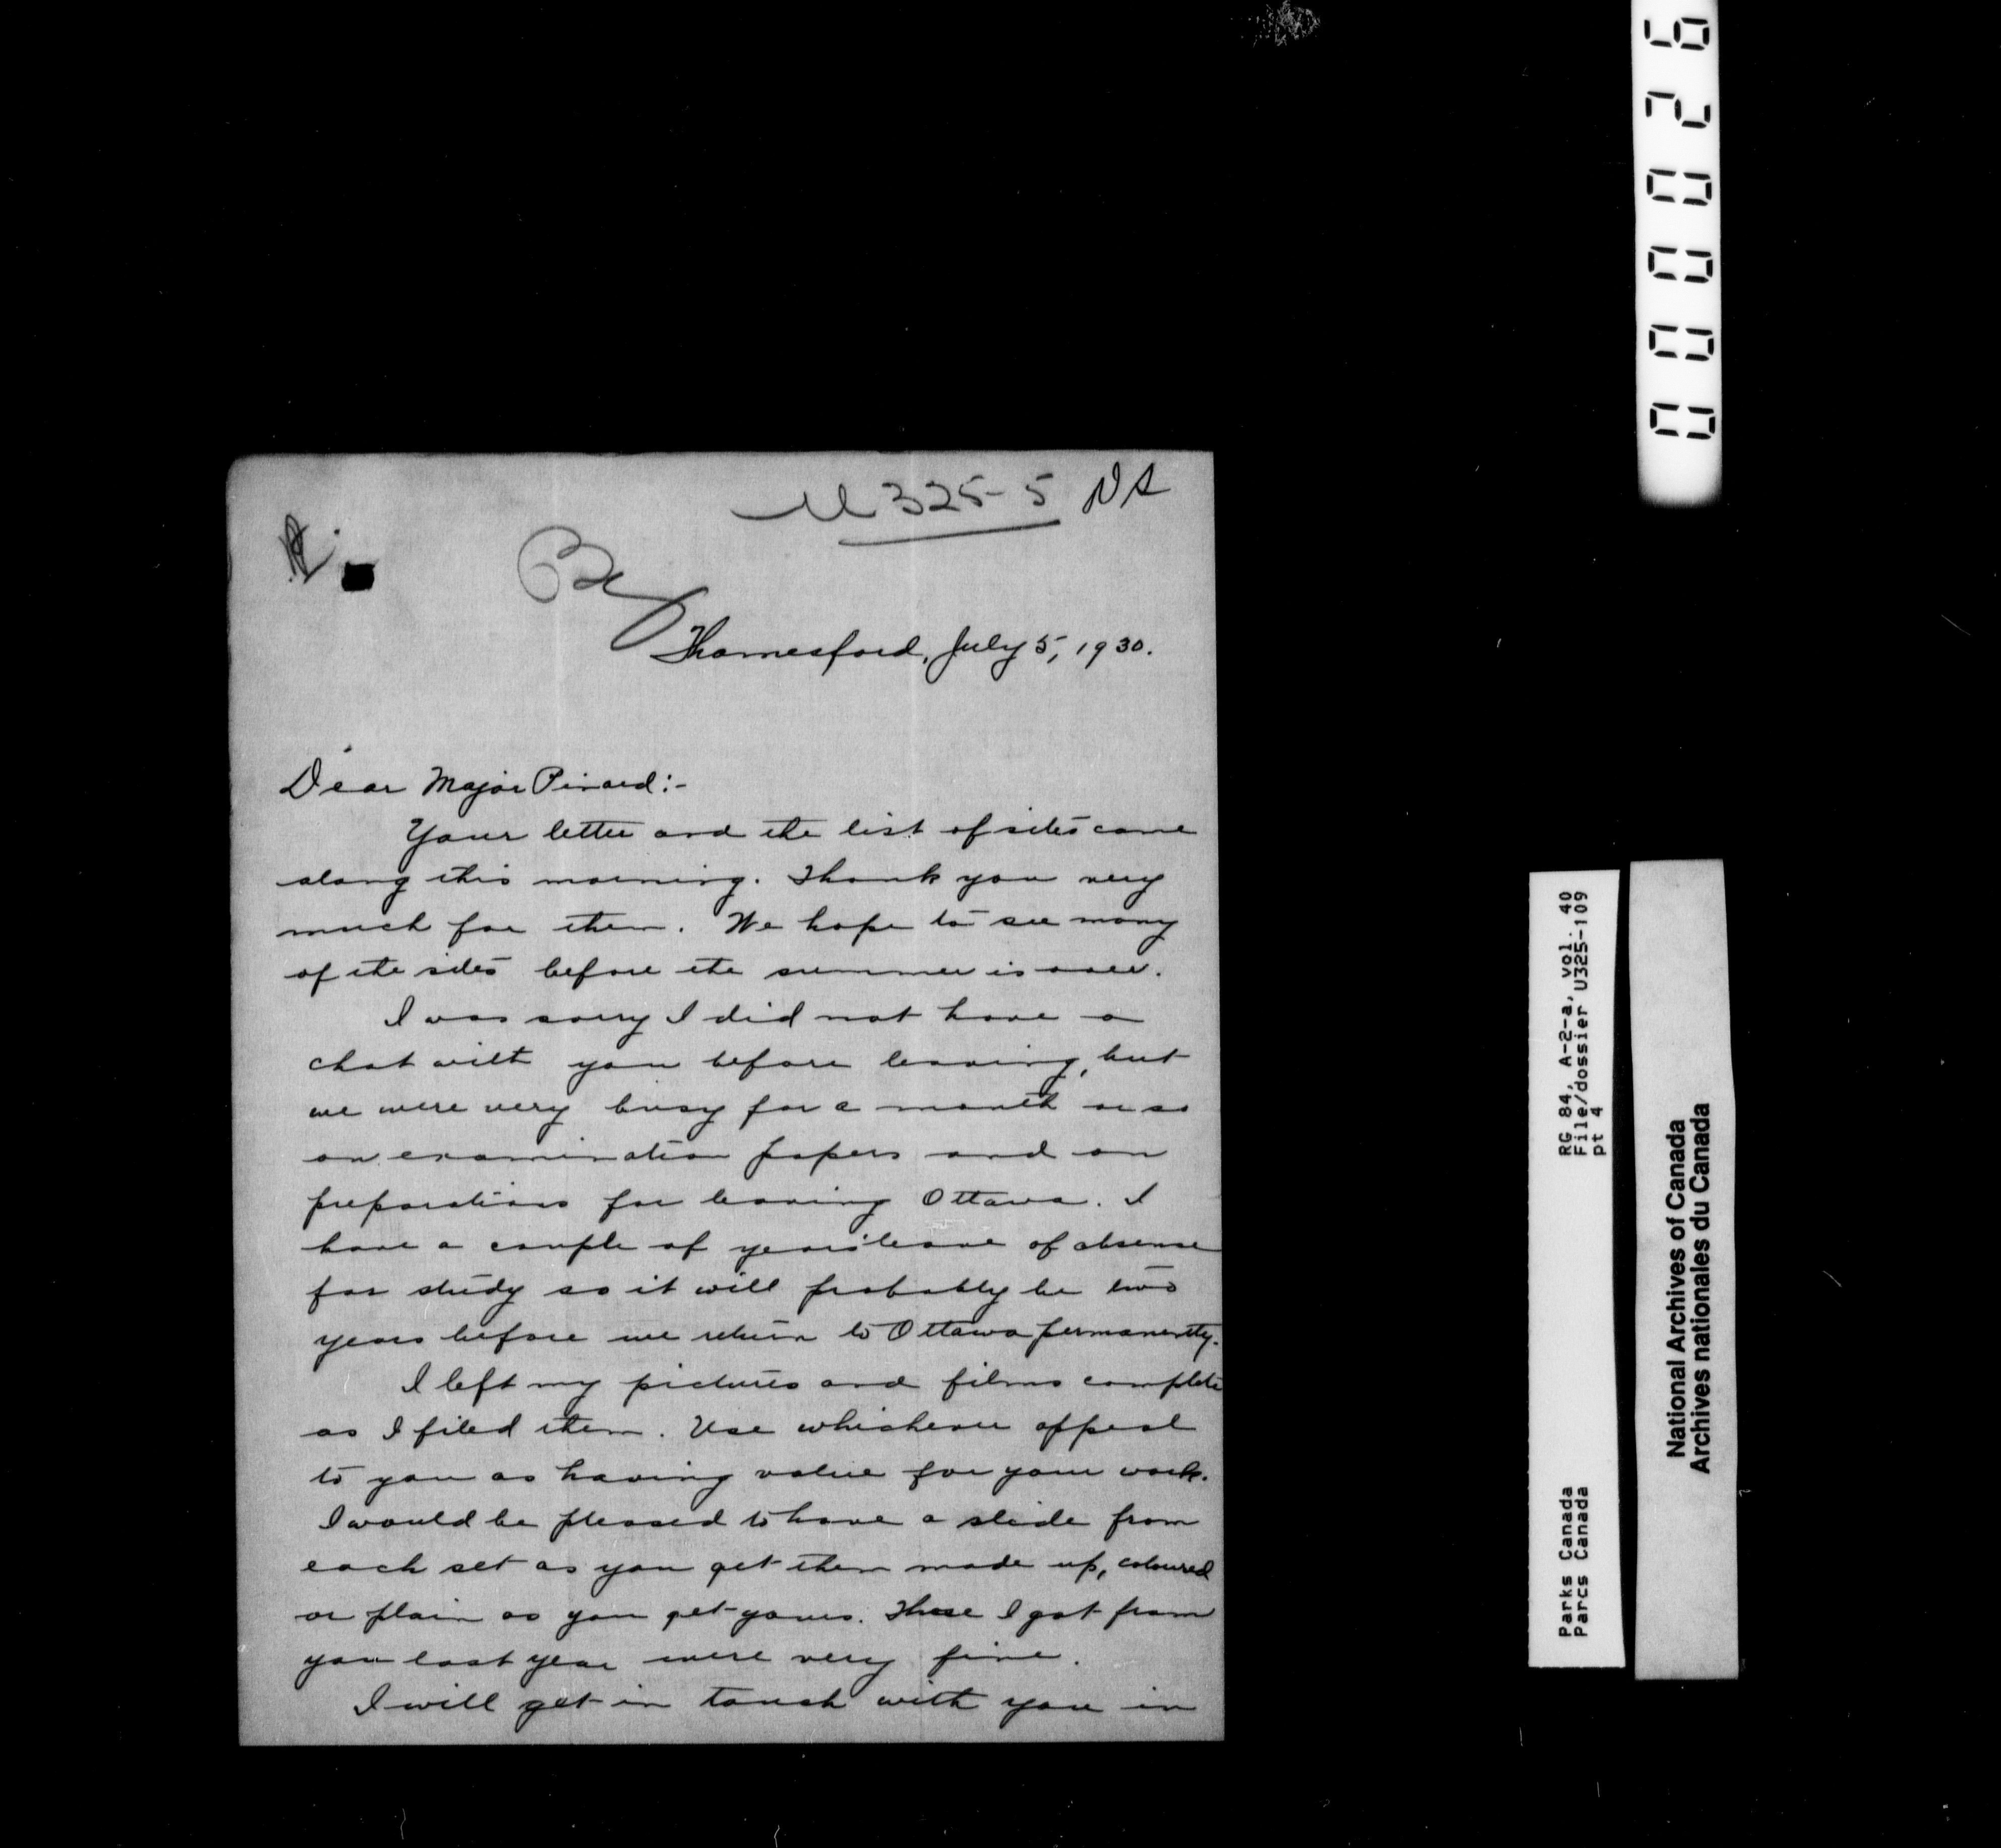 U325-5 NS
Thamesford, July 5, 1930.
Dear Major Pinard:-
Your letter and the list of sites came
along this morning. Thank you very
much for them. We hope to see many
of the sites before the summer is over.
I was sorry I did not have a
chat with you before leaving, but
we were very busy for a month or so
on examination papers and on
preparations for leaving Ottawa. I
have a couple of years' leave of absense
for study so it will probably be two
years before we return to Ottawa permanently.
I left my pictures and films complete
as I filed them. Use whichever appeal
to you as having value for your work.
I would be pleased to have a slide from
each set as you get them made up, coloured
or plain as you get yours. Those I got from
you last year were very fine.
I will get in touch with you in
000026
RG 84, A-2-a, vol. 40
File/dossier U325-109
pt 4
Parks Canada
Parcs Canada
National Archives of Canada
Archives nationales du Canada